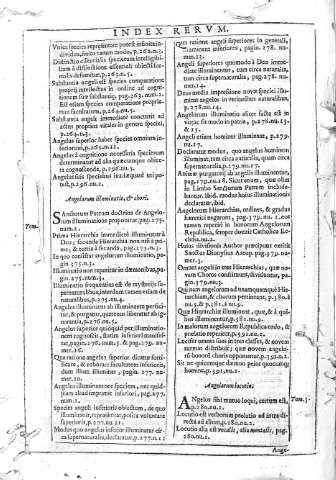 INDEX RERVM.
Vnica species repræsentare potest infinita in-
diuidua,
Distinctio essentialis specierum intelligibi-
lium à distinctione essentiali obiecti for-
malis desumitur, p.262.n.5.
Substantia angeli est species comparatione
proprij intellectus in ordine ad cogni-
Est etiam species comparatione propriæ
Substantia angeli immediatè concurrit ad
actus proprios vitales in genere speciei,
p.264.n.3.
Angelus superior habet species omnium in-
feriorum, p.265.n.11.
Angelus à cognitione necessaria specierum
determinatur ad alia quæcunque obiecta
cognoscenda, p.196.n.5.
Angelus suis speciebus inadæquatè vti po-
test, p.196.num.1.
Angelorum illuminatio, & chori.
Tom.
SAnctorum Patrum doctrina de Angelo-
rum illuminatione proponitur, pag.275.
num.1.
Prima Hierarchia immediatè illuminatur à
Deo; secunda Hierarchia non nisi à pri-
ma; & tertia à secunda, pag.275.n.3.
In quo consistat angelorum illuminatio, pa-
gin.275.n.3.
Illuminatio non reperitur in dæmonibus, pa-
gin.275.num.3.
Illuminatio frequentius est de mysterijs su-
pernaturalibus, interdum tamen etiam de
naturalibus, p.275.n.4.
Angelus illuminatus ab illuminante perfici-
tur, & purgatur, quatenus liberatur ab ig-
norantia, p.276.n.5.
Angelus superior quidquid per illuminatio-
nem cognoscit, statim
Qua ratione angelus superior dicatur fortifi-
care, & roborare facultatem inferioris,
dum illum illuminat, pagin.277. nu-
mer.10.
Angelus illuminans nec speciem, nec quid-
piam aliud imprimit inferiori, pag.277.
num.11.
Species angeli inferioris obiectum, de quo
illuminatur, repræsentat, posita voluntate
superioris, p.277.n.11.
Modus quo angelus inferior illuminatur cir-
ca supernaturalia, declaratur, p.277.n.12
Qua ratione angeli superiores in generali,
illuminent inferiores, pagin.278. nu-
mer.13.
Angeli superiores quomodo à Deo imme-
diatè illuminentur, tam circa naturalia,
tum circa supernaturalia, pag.278. nu-
mer.14.
Deus media impressione noui speciei illu-
minat angelos in veritatibus naturalibus,
p.278.n.14.
Angelorum illuminatio alicer facta est in
via, quo modo in patria, p.278.n.15
& 15.
Angeli etiam homines illuminant, p.279.
nu.17.
Declaratur modus, quo angelus hominem
illuminat, tam circa naturalia, quam circa
supernaturalia, p.279.nu.17.
Animæ purgatorij ab angelis illuminan-
tur, pag.279.n.18. Sicut etiam, quæ olim
in Limbo Sanctorum Patrum include-
bantur, ibid. modus huius illuminationis
declaratur, ibid.
Angelorum Hierarchias, ordines, & gradus
hæretici negarunt, pag.579.nu.1. eos
tamen reperiri in bonorum Angelorum
Republica, semper docuit Catholica Ec-
clesia.nu.2.
Huius diuisionis Author præcipuus extitit
Sanctus Dionysius Areop.pag.579.nu-
mer.3.
Omnes angeli in tres Hierarchias, quæ no-
uem Choros constituunt, diuiduntur, pa-
gin.
Qui nam angelorum ad vnamquamque Hie-
rarchiam, & chorum pertineant, p.580.à
nu.5. p.581.n.9.
Quæ Hierarchiæ illuminent, quæ, & à qui-
bus illuminentur, p.581.nu.9.
In malorum angelorum Republica ordo, &
prælatio reperitur, p.591.nu.1.
Lucifer omnes suos in tres classes, & nouem
turmas distribuit; quæ nouem angelo-
rũ bonorum choris opponuntur, p.591.n.2.
An sic vnicuique dæmon peior quocumque
homine, p.591.nu.
Angelorum locutio.
Tom.3.
ANgelos sibi mutuo loqui, certum est,
p.280.nu.1.
Locutio est verborum prolatio ad intra di-
recta ad alium, p.280.nu.1.
Locutio alia est vocalis, alia mentalis, pag.
280.nu.1.
Ange-